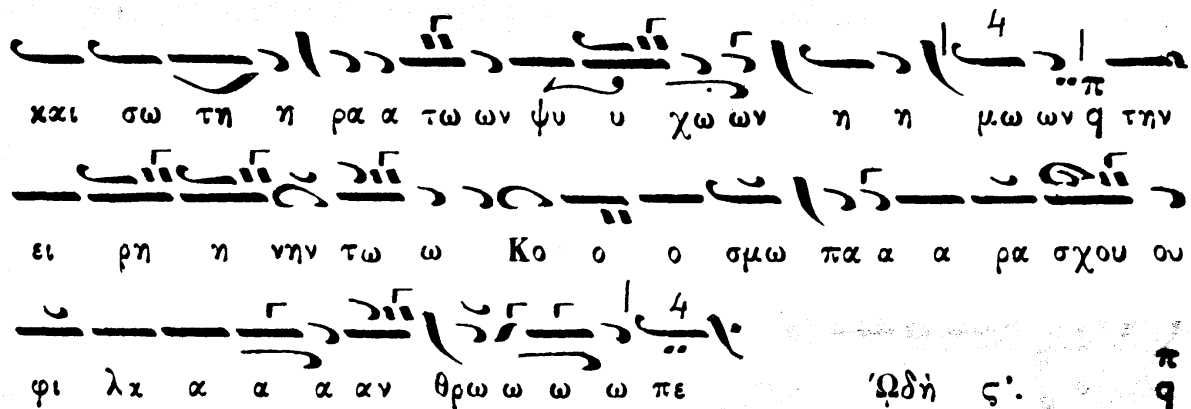 και σω τη η ρα α τω ων ψυ υ χω ων η η μω ων q την
ει ρη η νην τω ω Κο ο ο σμω πα α α ρα σχου ου
φι λα α α α αν θρω ω ω ω πε Ὠδή ς'. q